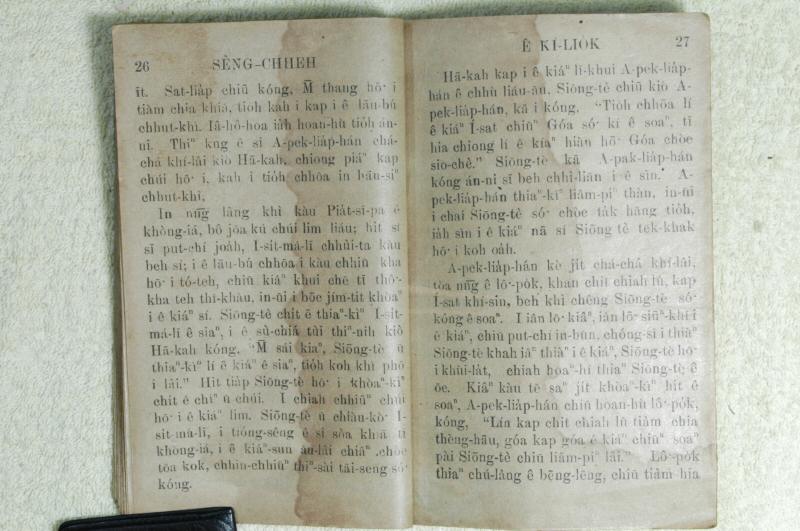 26 SÈNG-CHHEH
īt. Sat-lia̍p chiū kóng, M̄ thang hō͘ i
tiàm chia khiā, tio̍h kah i kap i ê lāu-bú
chhut-khì. Iâ-hô-hoa ia̍h hoan-hù tio̍h án-
ni. Thiⁿ kng ê sî A-pek-lia̍p-hán chá-
chá khí-lâi kiò Hā-kah, chiong piáⁿ kap
chúi hō͘ i, kah i tio̍h chhōa in hāu-siⁿ
chhut-khì.
In nn̄g lâng khì kàu Pia̍t-sī-pa ê
khòng-iá, bô jōa kú chúi lim liáu; hit sî
sī put-chí joa̍h, Í-sit-má-lī chhùi-ta kàu
beh sí; i ê lāu-bú chhōa i kàu chhiū kha
hō͘ i tó-teh, chiū kiáⁿ khui chē tī thô͘-
kha teh thî-khàu, in-ūi i bōe jím-tit khòaⁿ
i ê kiáⁿ sí. Siōng-tè chit ē thiaⁿ-kìⁿ Í-sit-
má-lī ê siaⁿ, i ê sù-chiá tùi thiⁿ-nih kiò
Hā-kah kóng, “M̄ sái kiaⁿ, Siōng-tè ū
thiaⁿ-kìⁿ lí kiáⁿ ê siaⁿ, tio̍h koh khì phō
i lâi.” Hit tia̍p Siōng-tè hō͘ i khòaⁿ-kìⁿ
chit ê chíⁿ ū chúi. I chiah chhiūⁿ chúi
hō͘ i ê kiáⁿ lim. Siōng-tè ū chiàu-kò͘ Í-
sit-má-lī, i tióng-sêng ê sî sòa khiā tī
khòng-iá, i ê kiáⁿ-sun āu-lâi chiâⁿ chòe
tōa kok, chhin-chhiūⁿ thiⁿ-sài tāi-seng só͘
kóng.
Ê KÍ-LIO̍K 27
Hā-kah kap i ê kiáⁿ lī-khui A-pek-lia̍p-
hán ê chhù liáu-āu, Siōng-tè chiū kiò A-
pek-lia̍p-hán, kā i kóng, “Tio̍h chhōa lí
ê kiáⁿ Í-sat chiūⁿ Góa só͘ kí ê soaⁿ, tī
hia chiong lí ê kiáⁿ hiàn hō͘ Góa chòe
sio-chè.” Siōng-tè kā A-pak-lia̍p-hán
kóng án-ni sī beh chhì-liān i ê sìn. A-
pek-lia̍p-hán thiaⁿ-kìⁿ liâm-piⁿ thàn, in-ūi
i chai Siōng-tè só͘ chòe ta̍k hāng tio̍h,
ia̍h sìn i ê kiáⁿ nā sí Siōng tè tek-khak
hō͘ i koh oa̍h.
A-pek-lia̍p-hán kè ji̍t chá-chá khí-lâi,
tòa nn̄g ê lô͘-po̍k, khan chit chiah lû, kap
Í-sat khí-sin, beh khì chêng Siōng-tè só͘
kóng ê soaⁿ. I iân lō͘ kiâⁿ, iân lō͘ siūⁿ-khí i
ê kiáⁿ, chiū put-chí in-būn, chóng-sī i thiàⁿ
Siōng-tè khah iâⁿ thiàⁿ i ê kiáⁿ, Siōng-tè hō͘
i khùi-la̍t, chiah hoaⁿ-hí thiaⁿ Siōng-tè ê
ōe. Kiâⁿ kàu tē saⁿ ji̍t khòaⁿ-kìⁿ hit ê
soaⁿ, A-pek-lia̍p-hán chiū hoan-hù lô͘-po̍k,
kóng, “Lín kap chit chiah lû tiàm chia
thèng-hāu, góa kap góa ê kiáⁿ chiūⁿ soaⁿ
pài Siōng-tè chiū liâm-piⁿ lâi.” Lô͘-po̍k
thiaⁿ chú-lâng ê bēng-lēng, chiū tiàm hia